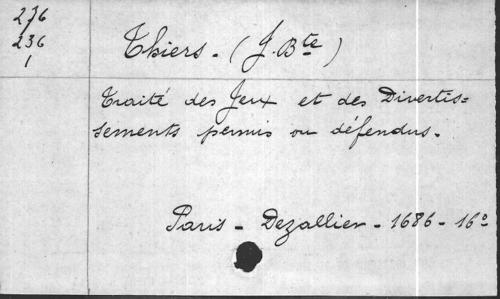 276
236
1
Thiers. (J. Bte)
Traité des Jeux et des Divertis=
sements permis ou défendus.
Paris - Dezallier - 1686 - 16º